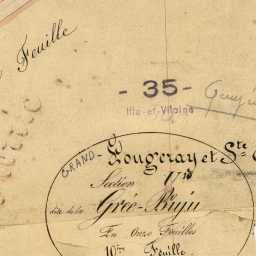 Feuille
- 35 -
Ille-et-Vilaine
GRAND-
Fougeray et Ste
Section
dite de la
Grée-Buju
En Onze Feuilles
10me Feuille